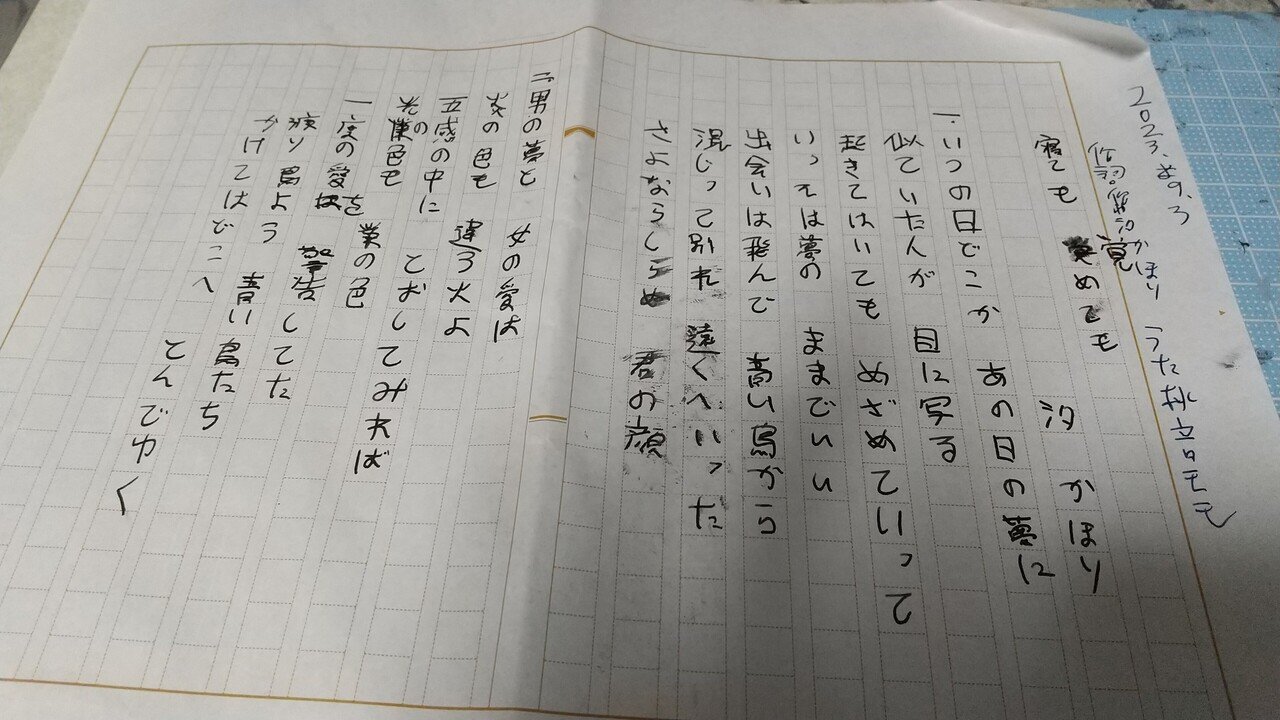 2023.
作詞作曲 汐かほり うた 桃立モモ
寝ても 覚めても
汐 かほり
一.いつの日どこか あの日の夢に
似ていた人が 目に写る
起きてはいても めざめていって
いっては夢の ままでいい
出会いは飛んで 青い鳥から
混じって別れ 遠くへいった
さよならしらぬ 君の顔
二.男の夢と 女の愛は
炎の色も 違う火よ
五感の中に とおしてみれば
光の色も 業の色
一度の愛を 警告してた
渡り鳥よう 青い鳥たち
かけてはどこへ とんでゆく